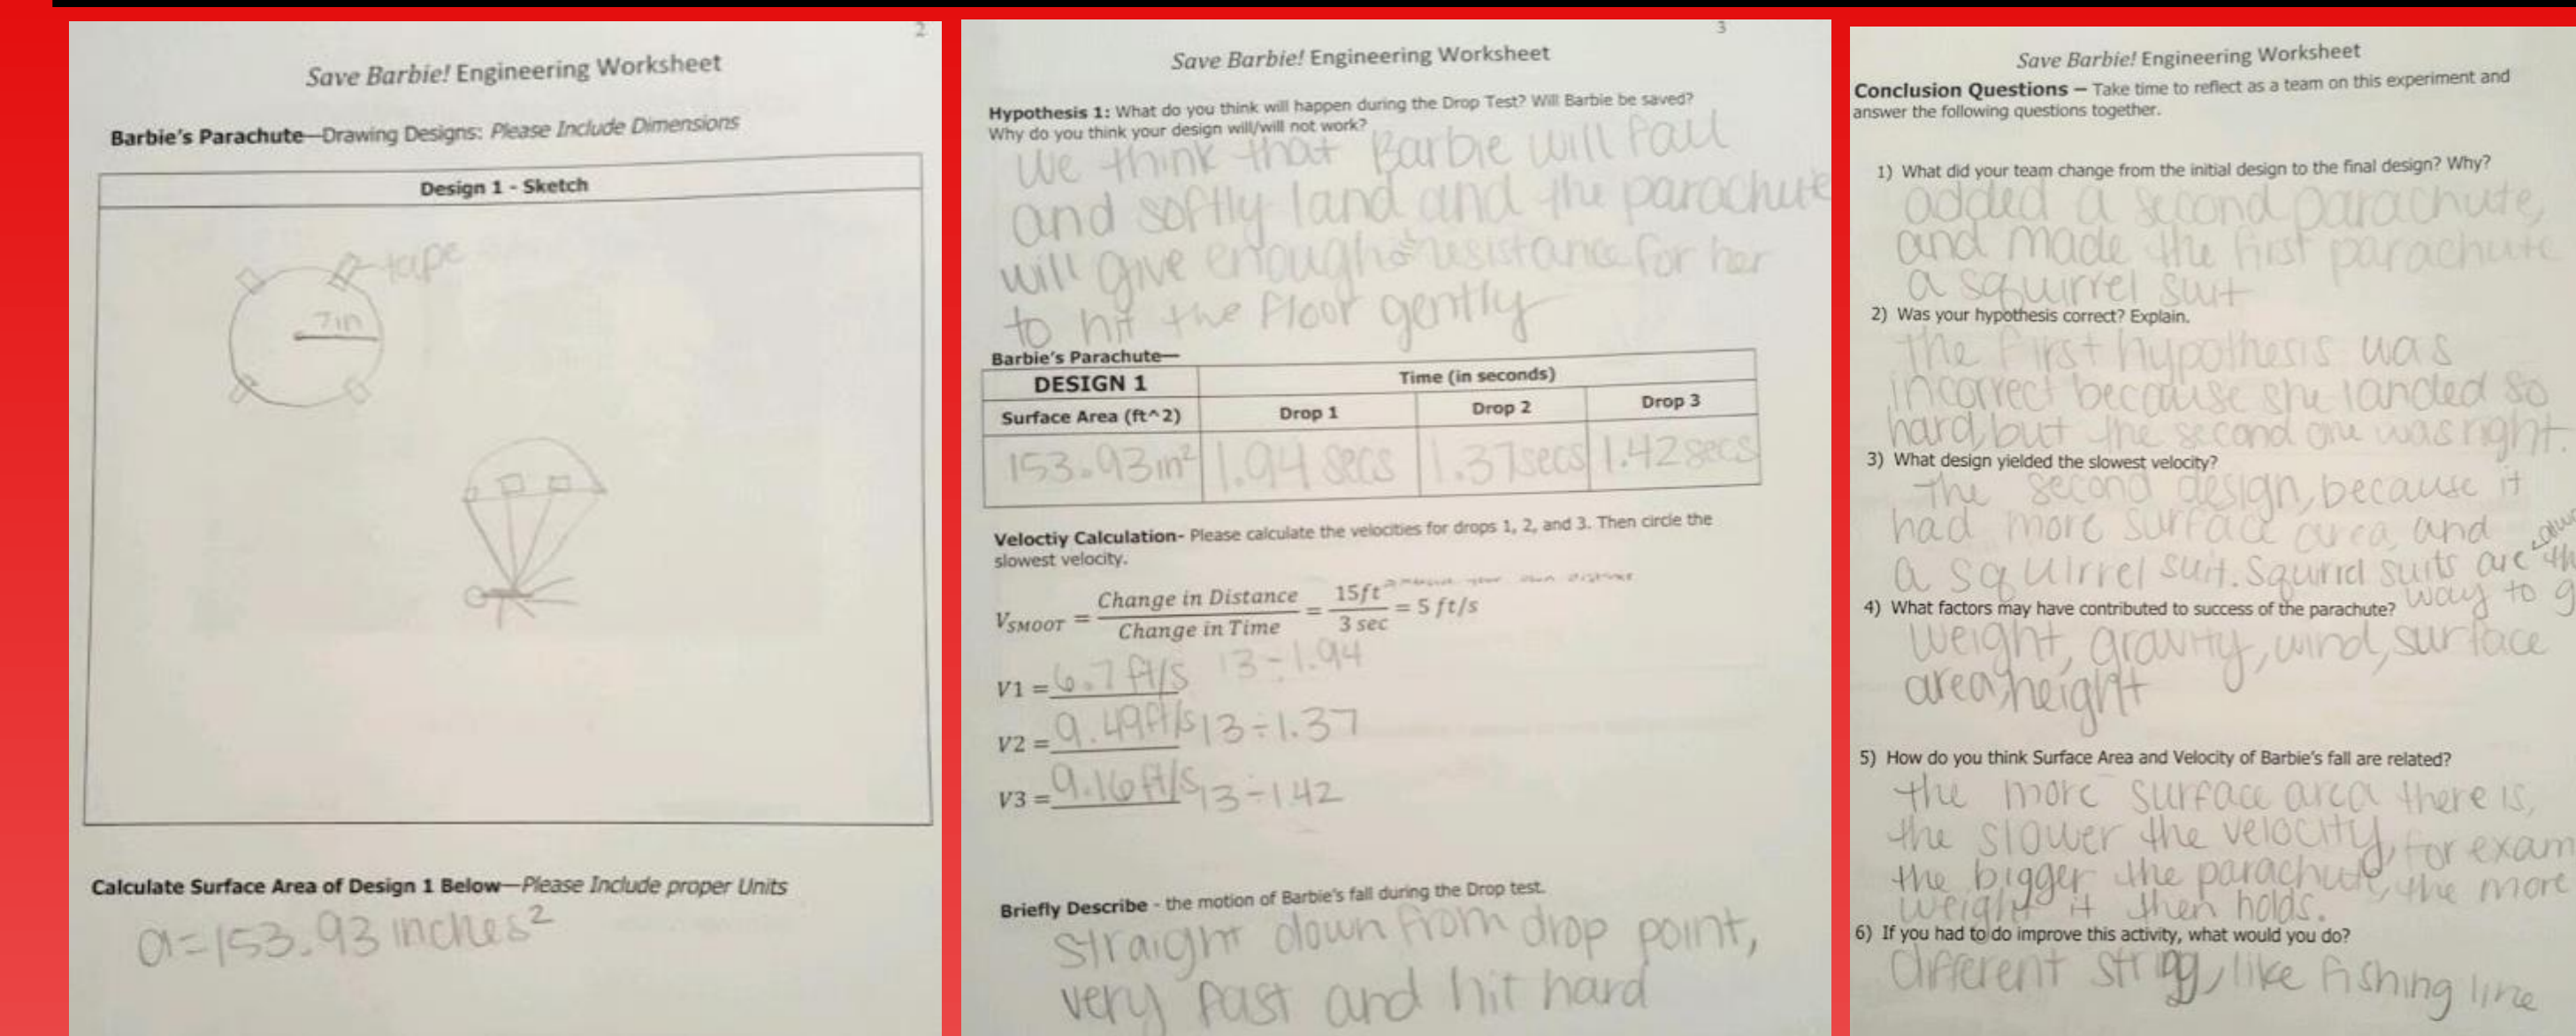 2
Save Barbie! Engineering Worksheet
Barbie's Parachute—Drawing Designs: Please Include Dimensions
Design 1 - Sketch
tape
7in
Calculate Surface Area of Design 1 Below—Please Include proper Units
a=153.93 inches²
3
Save Barbie! Engineering Worksheet
Hypothesis 1: What do you think will happen during the Drop Test? Will Barbie be saved?
Why do you think your design will/will not work?
We think that Barbie will fall
and softly land and the parachute
will give enough resistance for her
to hit the floor gently
Barbie's Parachute—
DESIGN 1 Time (in seconds)
Surface Area (ft^2) Drop 1 Drop 2 Drop 3
153.93in² 1.94 secs 1.37secs 1.42secs
Veloctiy Calculation- Please calculate the velocities for drops 1, 2, and 3. Then circle the
slowest velocity.
V_SMOOT = Change in Distance / Change in Time = 15ft / 3 sec = 5 ft/s
V1 = 6.7 ft/s 13÷1.94
V2 = 9.49ft/s 13÷1.37
V3 = 9.16ft/s 13÷1.42
Briefly Describe - the motion of Barbie's fall during the Drop test.
straight down from drop point,
very fast and hit hard
Save Barbie! Engineering Worksheet
Conclusion Questions – Take time to reflect as a team on this experiment and
answer the following questions together.
1) What did your team change from the initial design to the final design? Why?
added a second parachute,
and made the first parachute
a squirrel suit
2) Was your hypothesis correct? Explain.
the first hypothesis was
incorrect because she landed so
hard, but the second one was right.
3) What design yielded the slowest velocity?
the second design, because it
had more surface area, and
a squirrel suit. Squirrel suits are
way to
4) What factors may have contributed to success of the parachute?
weight, gravity, wind, surface
area, height
5) How do you think Surface Area and Velocity of Barbie's fall are related?
the more surface area there is,
the slower the velocity, for exam
the bigger the parachute, the more
weight it then holds.
6) If you had to do improve this activity, what would you do?
different string, like fishing line